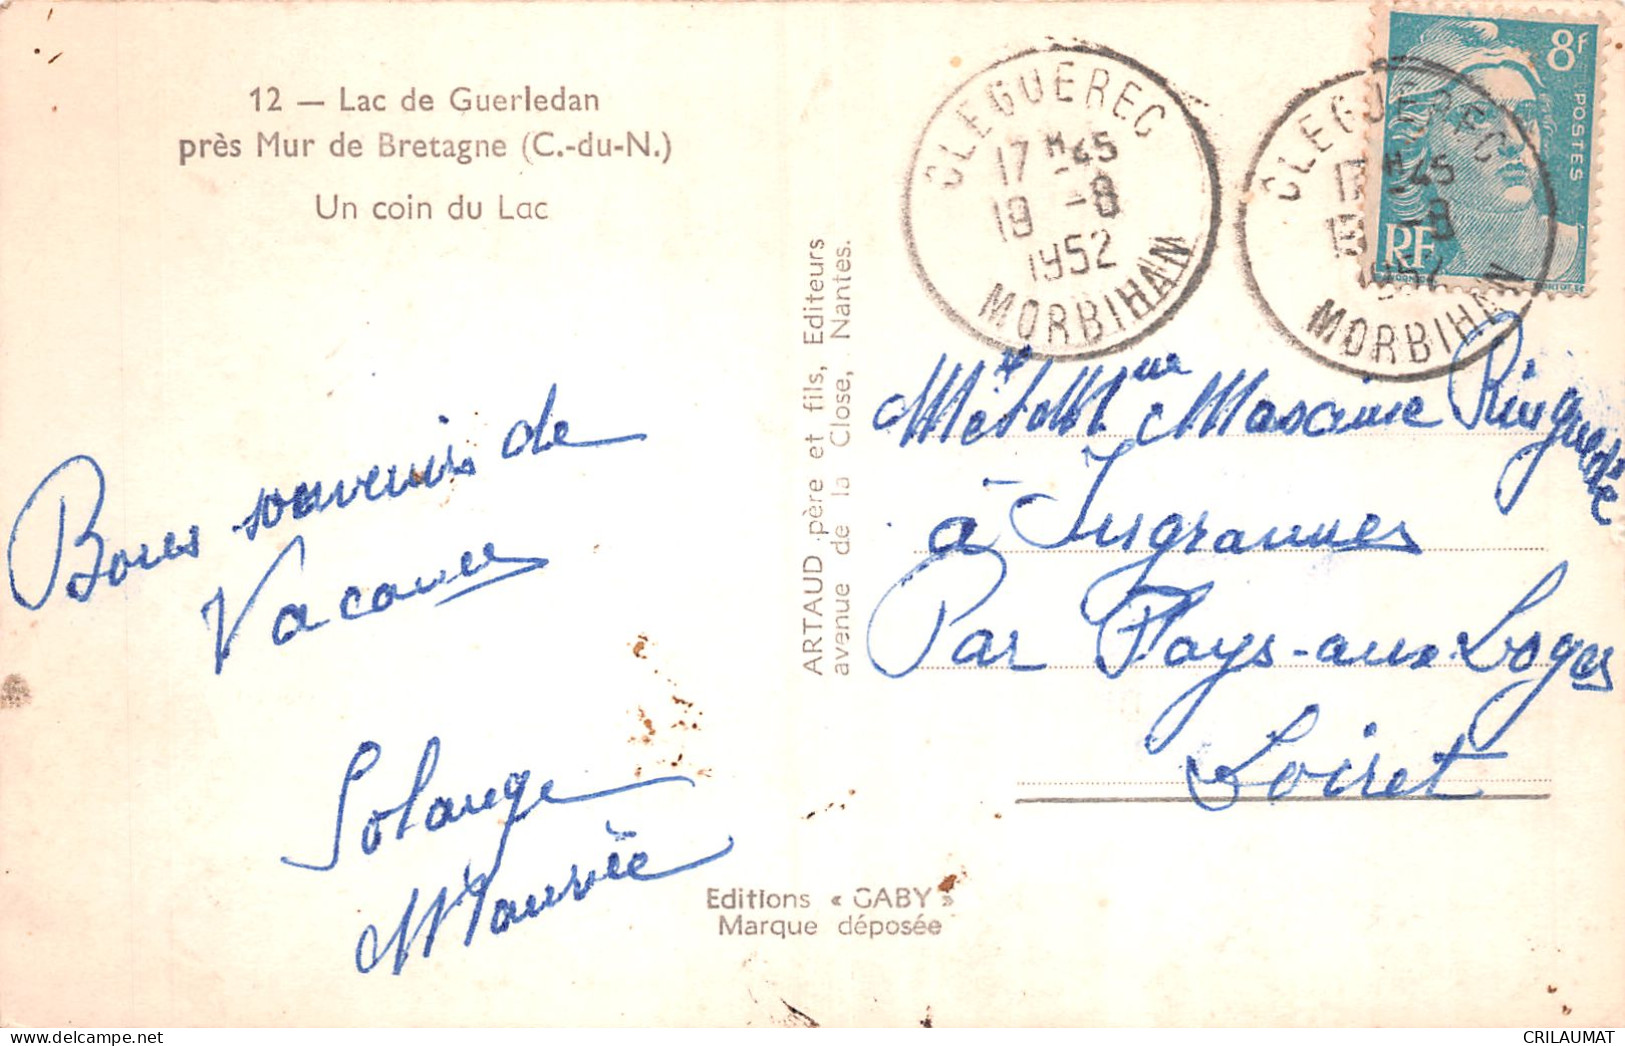 12 — Lac de Guerledan
près Mur de Bretagne (C.-du-N.)
Un coin du Lac
Bons souvenirs de
Vacances
Solange
ARTAUD père et fils, Editeurs
avenue de la Close, Nantes.
Editions « GABY »
Marque déposée
CLEGUEREC
17 H 45
19 -8
1952
MORBIHAN
CLEGUEREC
17 H 45
19 -8
1952
MORBIHAN
8F
POSTES
RF
Mr et Mme Maxime
à Ingrannes
Par Fays-aux Loges
Loiret
CRILAUMAT